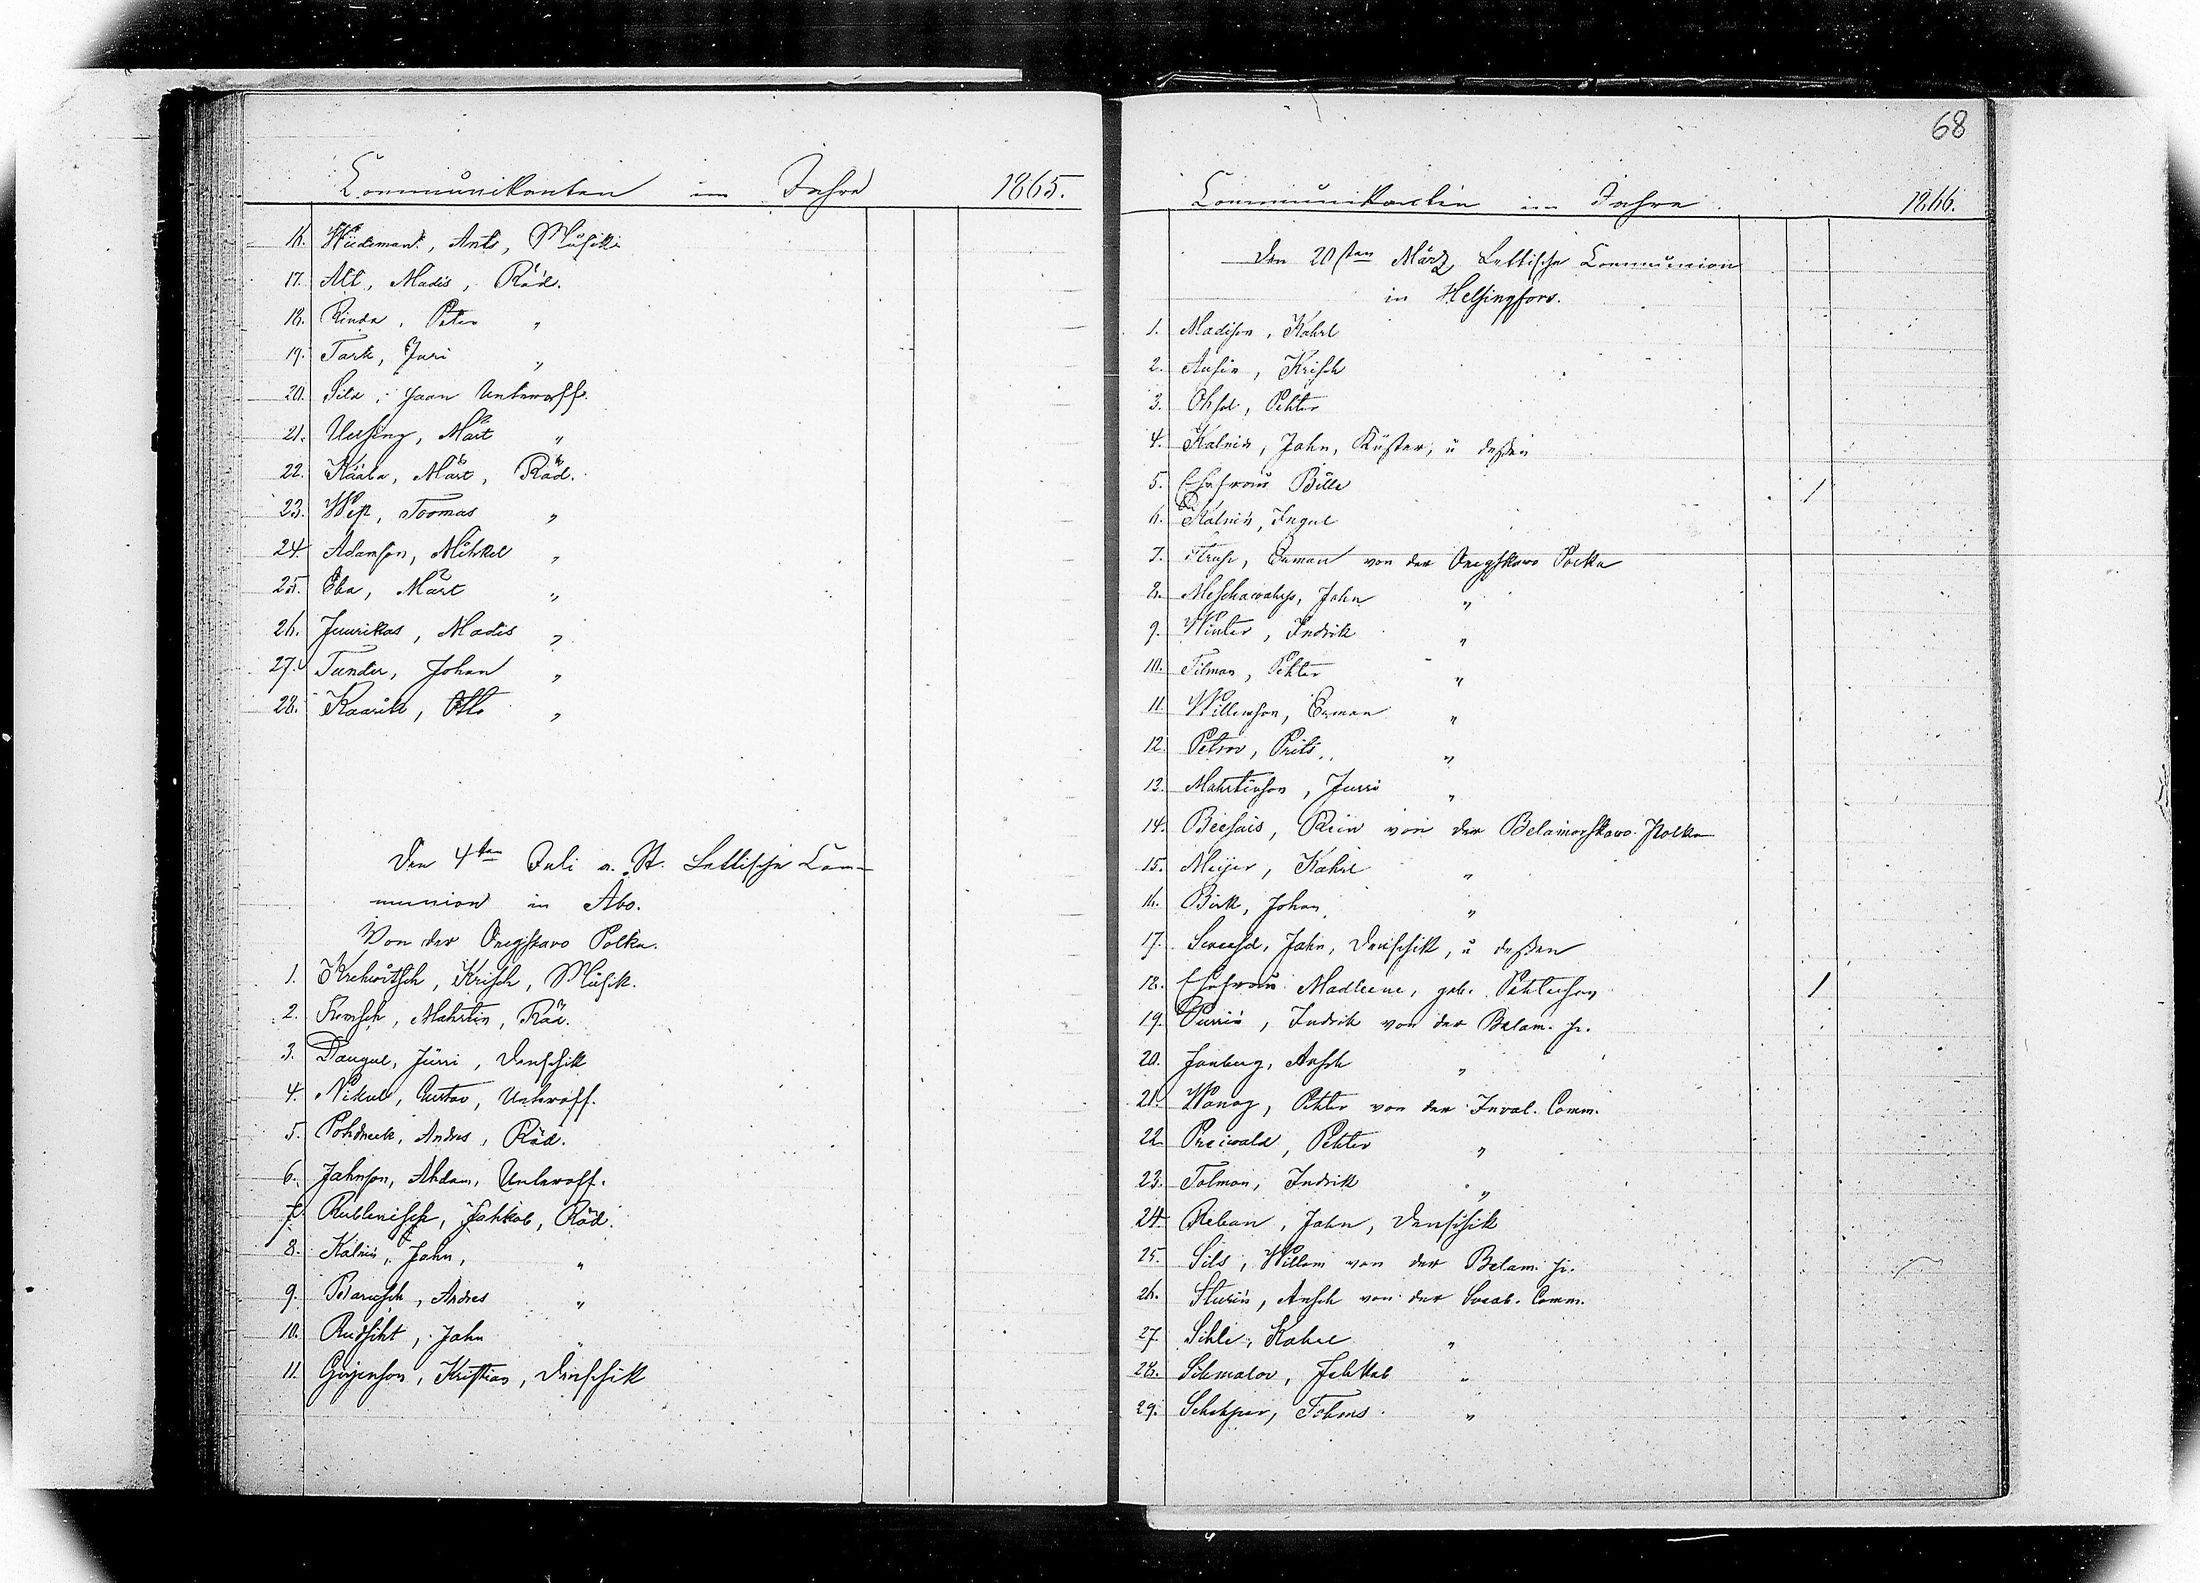 Communikanten im Jahre 1865.
16. Wiedemann, Ants, Musik.
17. Alt, Madis, Räd.
18. Rinda, Peter "
19. Tark, Juri "
20. Sild, Jaan Unteroff.
21. Uessing, Märt "
22. Kääba, Märt, Räd.
23. West, Toomas "
24. Adamson, Mihkel "
25. Eba, Märt "
26. Juurikas, Madis "
27. Tunder, Johan "
28. Kaarik, Otto "
Den 4ten Juli a. St. Lettische Com-
munion in Abo.
Von der Onegskavo Polka.
1. Krehwitsch, Krisch, Musik.
2. Kemsch, Mahrtin, Räd.
3. Daugul, Jürri, Denschik
4. Nikul, Gustav, Unteroff.
5. Pohdneek, Andres, Räd.
6. Jahnson, Ahdam, Unteroff.
7. Rublenisch, Jahkob, Räd.
8. Kalnin, Jahn, "
9. Barusch, Andres "
10. Rudsiht, Jahn "
11. Girgenson, Kristian, Denschik
68
Communikanten im Jahre 1866.
Den 20sten März Lettische Communion
in Helsingfors.
1. Madison, Kahrl
2. Ansin, Krisch
3. Ohsol, Pehter
4. Kalnin, Jahn, Küster, u deßen
5. Ehefrau Bille /
6. Kalnin, Ingul
7. Struhs, Erman von der Onegskavo Polka
8. Meschawalks, Jahn "
9. Winter, Indrik "
10. Tilman, Pehter "
11. Willumson, Erman "
12. Petrov, Prits "
13. Mahrtinson, Jurri "
14. Beesais, Rein von der Belamorskavo Polka
15. Meijer, Kahrl "
16. Birk, Johan "
17. Sweesd, Jahn, Denschik, u deßen
18. Ehefrau Madleene, geb. Pehterson /
19. Purrin, Indrik von der Belam. P.
20. Janberg, Ansch "
21. Wanag, Pehter von der Inval. Comm.
22. Preiwald, Pehter "
23. Tolman, Indrik "
24. Reban, Jahn, Denschik
25. Sils, Willem von der Belam. P.
26. Sturin, Ansch von der Sveab. Comm.
27. Sihle, Kahrl "
28. Sihmalov, Jehkab "
29. Schihper, Tohms "